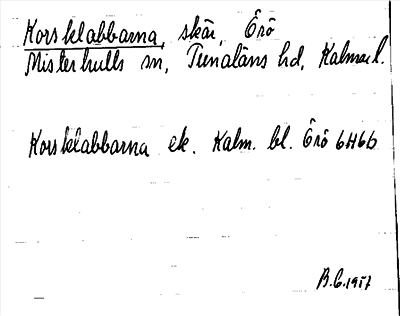 Korsklabbarna, skär, Örö
Misterhults sn, Tunaläns hd, Kalmar l.
Korsklabbarna ek. Kalm. bl. Örö 6H6b
B.C. 1957